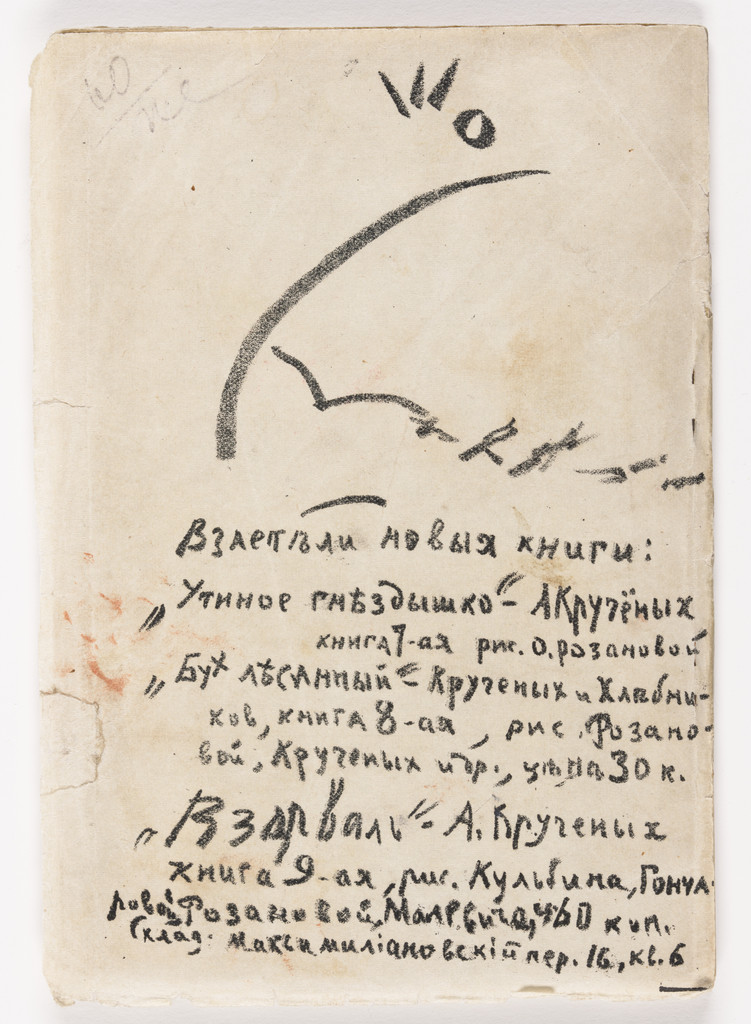 Взлетѣли новыя книги:
„Утиное гнѣздышко“ – А Кручёных
книга 7-ая рис. О. розановой
„Бух лѣсинный“ – Крученых и Хлѣбни-
ков, книга 8-ая, рис. Розано-
вой, Крученых и др., цѣна 30 к.
„Взорваль“ – А. Крученых
книга 9-ая, рис. Кульбина, Гонча-
ровой, Розановой, Малевича, ц 60 коп.
Склад: Максимилiановскiй пер. 16, кв. 6